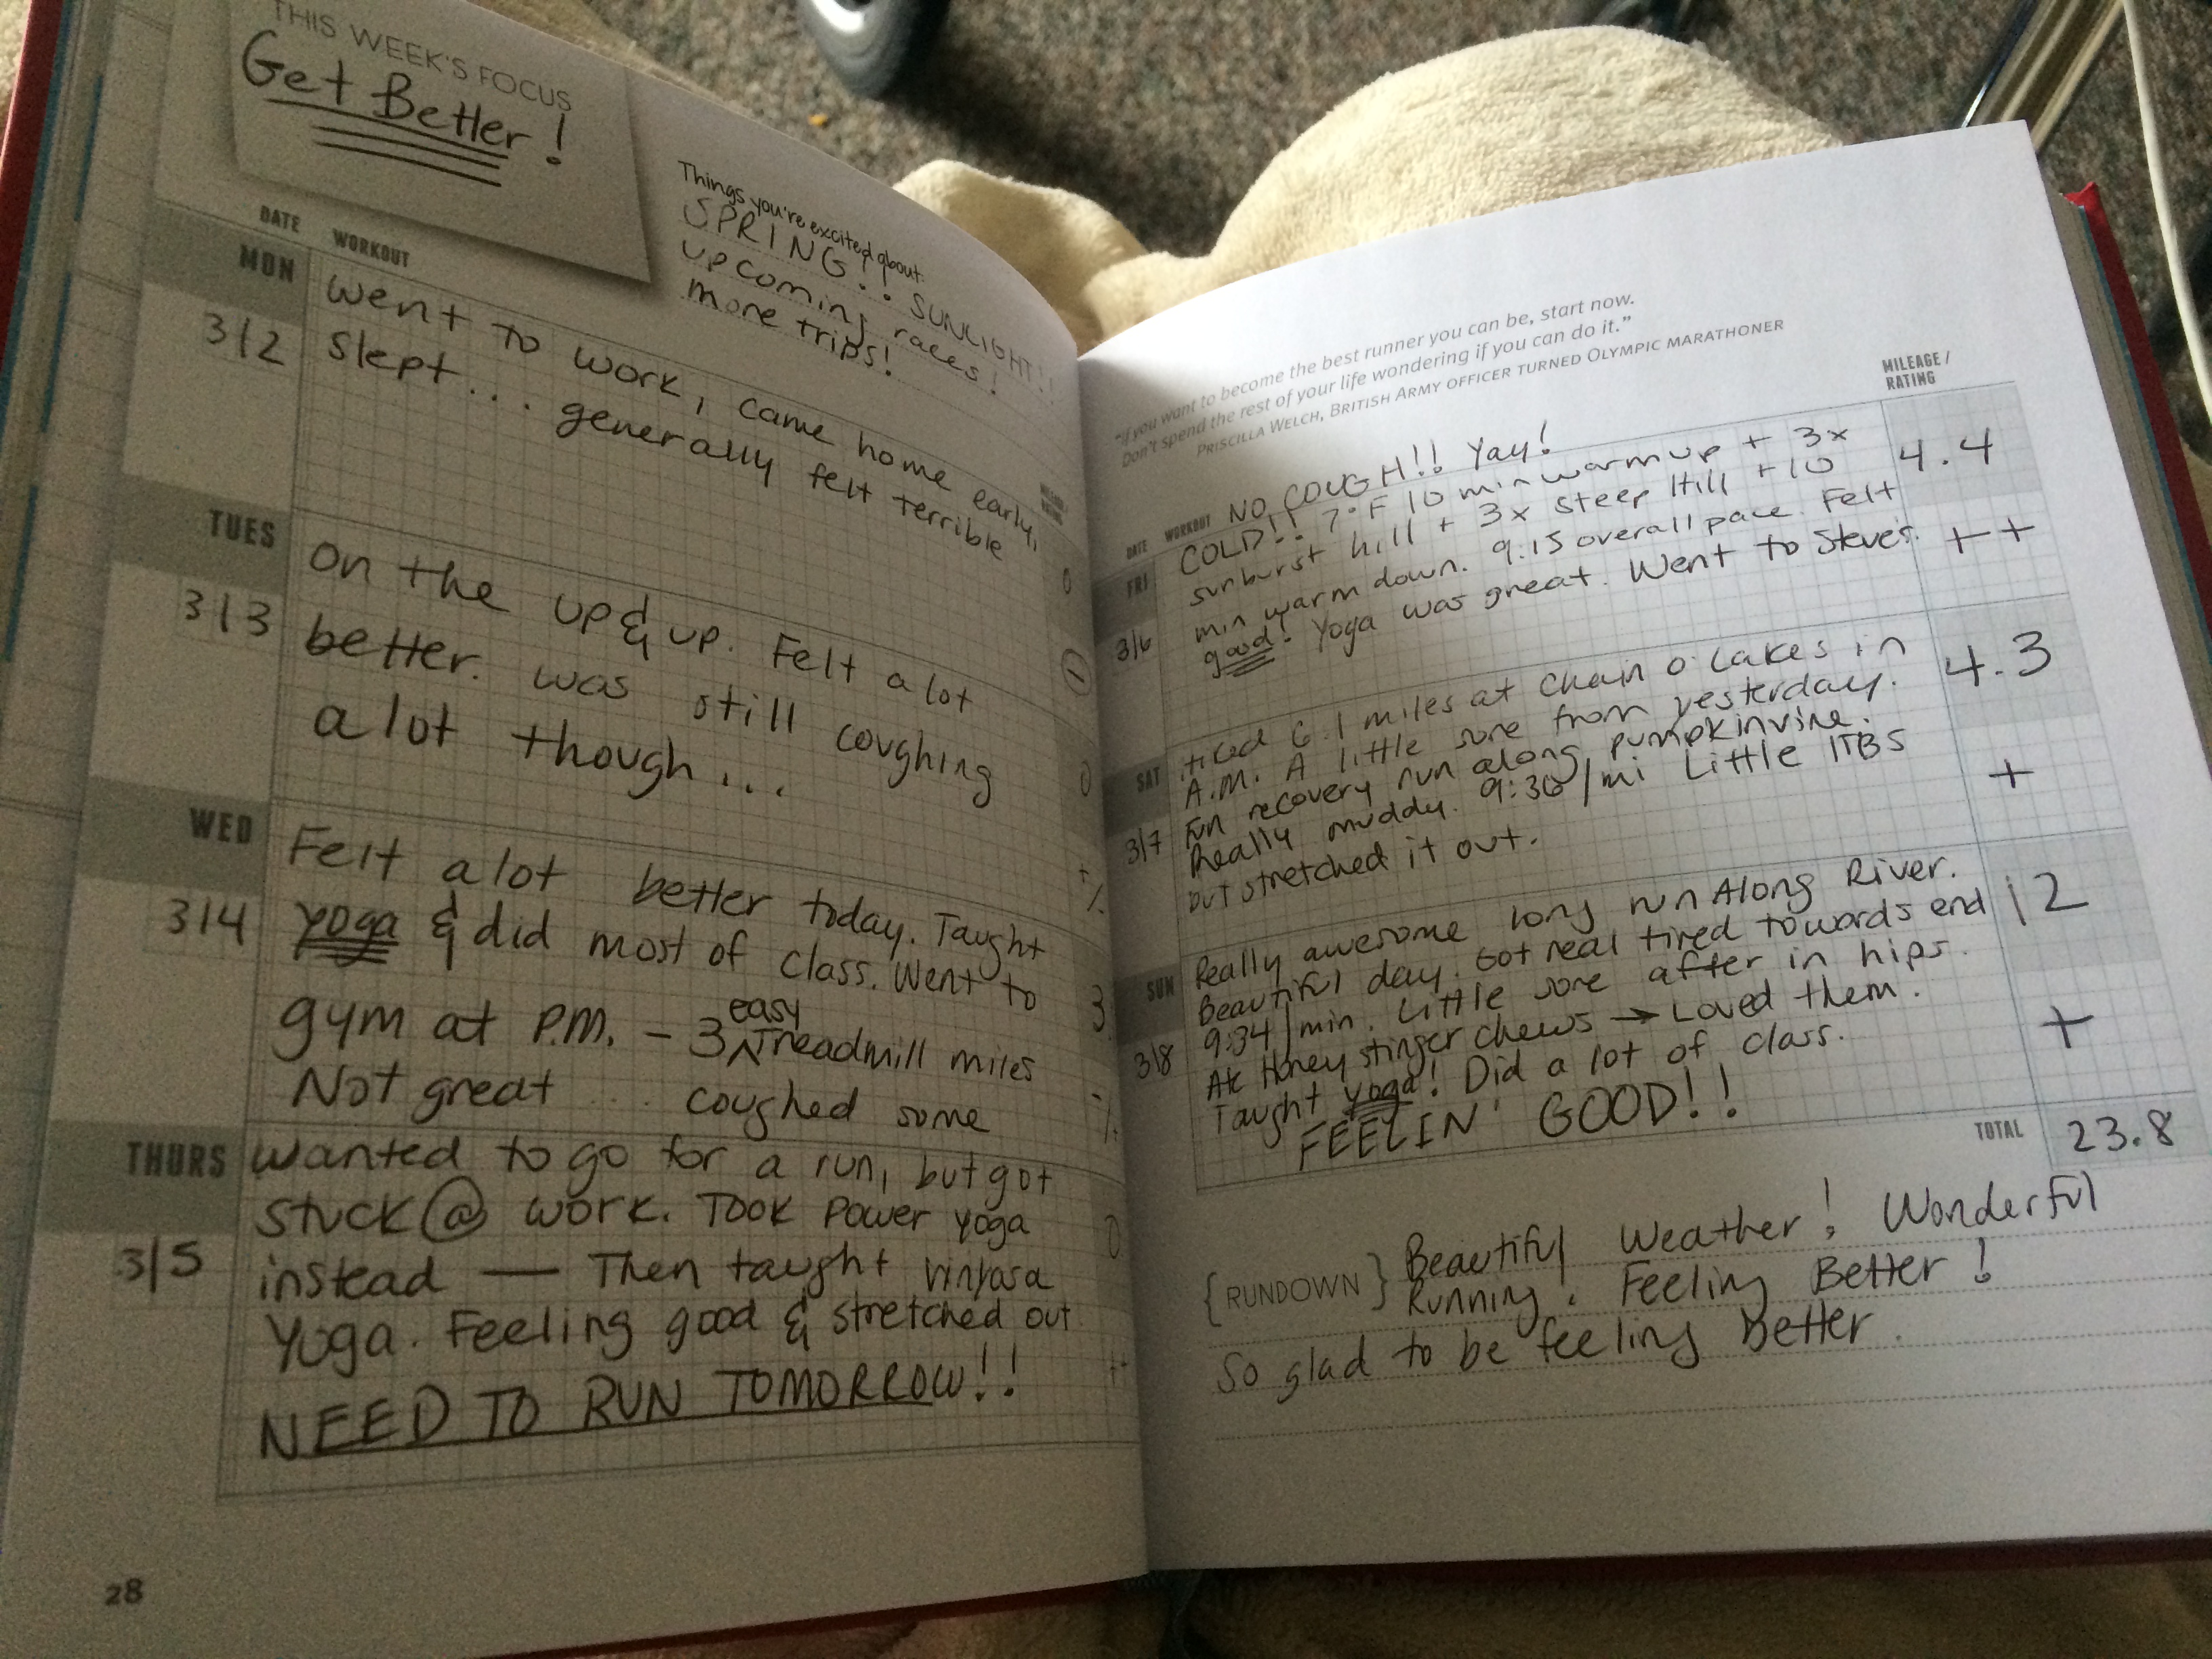 THIS WEEK'S FOCUS
Get Better!
Things you're excited about:
SPRING!! SUNLIGHT!!
upcoming races!
more trips!
DATE WORKOUT
MILEAGE/
RATING
MON
3/2
went to work, came home early,
slept... generally felt terrible
0
-
TUES
3/3
On the up & up. Felt a lot
better. was still coughing
a lot though...
0
+/-
WED
3/4
Felt a lot better today. Taught
yoga & did most of class. Went to
gym at P.M. - 3 easy Treadmill miles
Not great ... coughed some
3
-/+
THURS
3/5
wanted to go for a run, but got
stuck @ work. Took Power yoga
instead — Then taught vinyasa
Yoga. Feeling good & stretched out
NEED TO RUN TOMORROW!!
0
++
28
"If you want to become the best runner you can be, start now.
Don't spend the rest of your life wondering if you can do it."
PRISCILLA WELCH, BRITISH ARMY OFFICER TURNED OLYMPIC MARATHONER
DATE WORKOUT
MILEAGE /
RATING
FRI
3/6
NO COUGH!! Yay!
COLD!! 7°F 10 min warm up + 3x
sunburst hill + 3x steep Hill + 10
min warm down. 9:15 overall pace. Felt
good! Yoga was great. Went to Steve's.
4.4
++
SAT
3/7
Hiked 6.1 miles at Chain O' Lakes in
A.M. A little sore from yesterday.
Fun recovery run along pumpkinvine.
Really muddy. 9:36/mi Little ITBS
but stretched it out.
4.3
+
SUN
3/8
Really awesome long run Along River.
Beautiful day. Got real tired towards end
9:34/min. Little sore after in hips.
Ate Honey stinger chews → Loved them.
Taught yoga! Did a lot of class.
FEELIN' GOOD!!
12
+
TOTAL 23.8
{RUNDOWN} Beautiful Weather! Wonderful
Running! Feeling Better!
So glad to be feeling better.